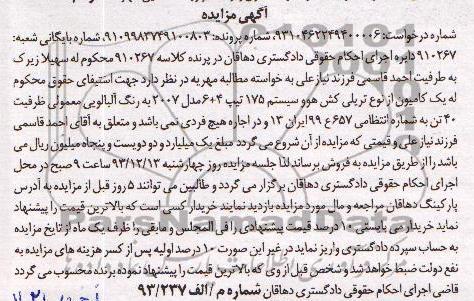 آگهی مزایده
شماره درخواست: ۹۳۱۰۴۶۲۲۴۹۴۰۰۰۰۶ شماره پرونده: ۹۱۰۹۹۸۳۷۴۹۱۰۰۸۰۳ شماره بایگانی شعبه:
۹۱۰۲۶۷ دایره اجرای احکام حقوقی دادگستری دهاقان در پرنده کلاسه ۹۱۰۲۶۷ محکوم له سهیلا زیرک
به طرفیت احمد قاسمی فرزند نیاز علی به خواسته مطالبه مهریه در نظر دارد جهت استیفای حقوق محکوم
له یک کامیون از نوع تریلی کش هوو سیستم ۱۷۵ تیپ ۶۰۴ مدل ۲۰۰۷ به رنگ آلبالویی معمولی ظرفیت
۴۰ تن به شماره انتظامی ۶۵۷ ع ۹۹ ایران ۱۳ و در اجاره هیچ فردی نمی باشد و متعلق به آقای احمد قاسمی
فرزند نیاز علی و قیمتی که مزایده از آن شروع می گردد مبلغ یک میلیارد و دویست و پنجاه میلیون ریال می
باشد را از طریق مزایده به فروش برساند لذا جلسه مزایده روز چهارشنبه ۹۳/۱۲/۱۳ ساعت ۹ صبح در محل
اجرای احکام حقوقی دادگستری دهاقان برگزار می گردد و طالبین می توانند ۵ روز قبل از مزایده به آدرس
پارکینگ دهاقان مراجعه و مال مورد مزایده بازدید نمایند خریدار کسی است که بالاترین قیمت را پیشنهاد
نماید خریدار می بایستی ۱۰ درصد قیمت پیشنهادی را فی المجلس و مابقی را ظرف یک ماه از تایخ مزایده
به حساب سپرده دادگستری واریز نماید در غیر این صورت ۱۰ درصد اولیه پس از کسر هزینه های مزایده به
نفع دولت ضبط خواهد شد و شخص قبل از وی که بالاترین قیمت را پیشنهاد نموده برنده محسوب می گردد
قاضی اجرای احکام حقوقی دادگستری دهاقان شماره م / الف ۹۳/۲۳۷